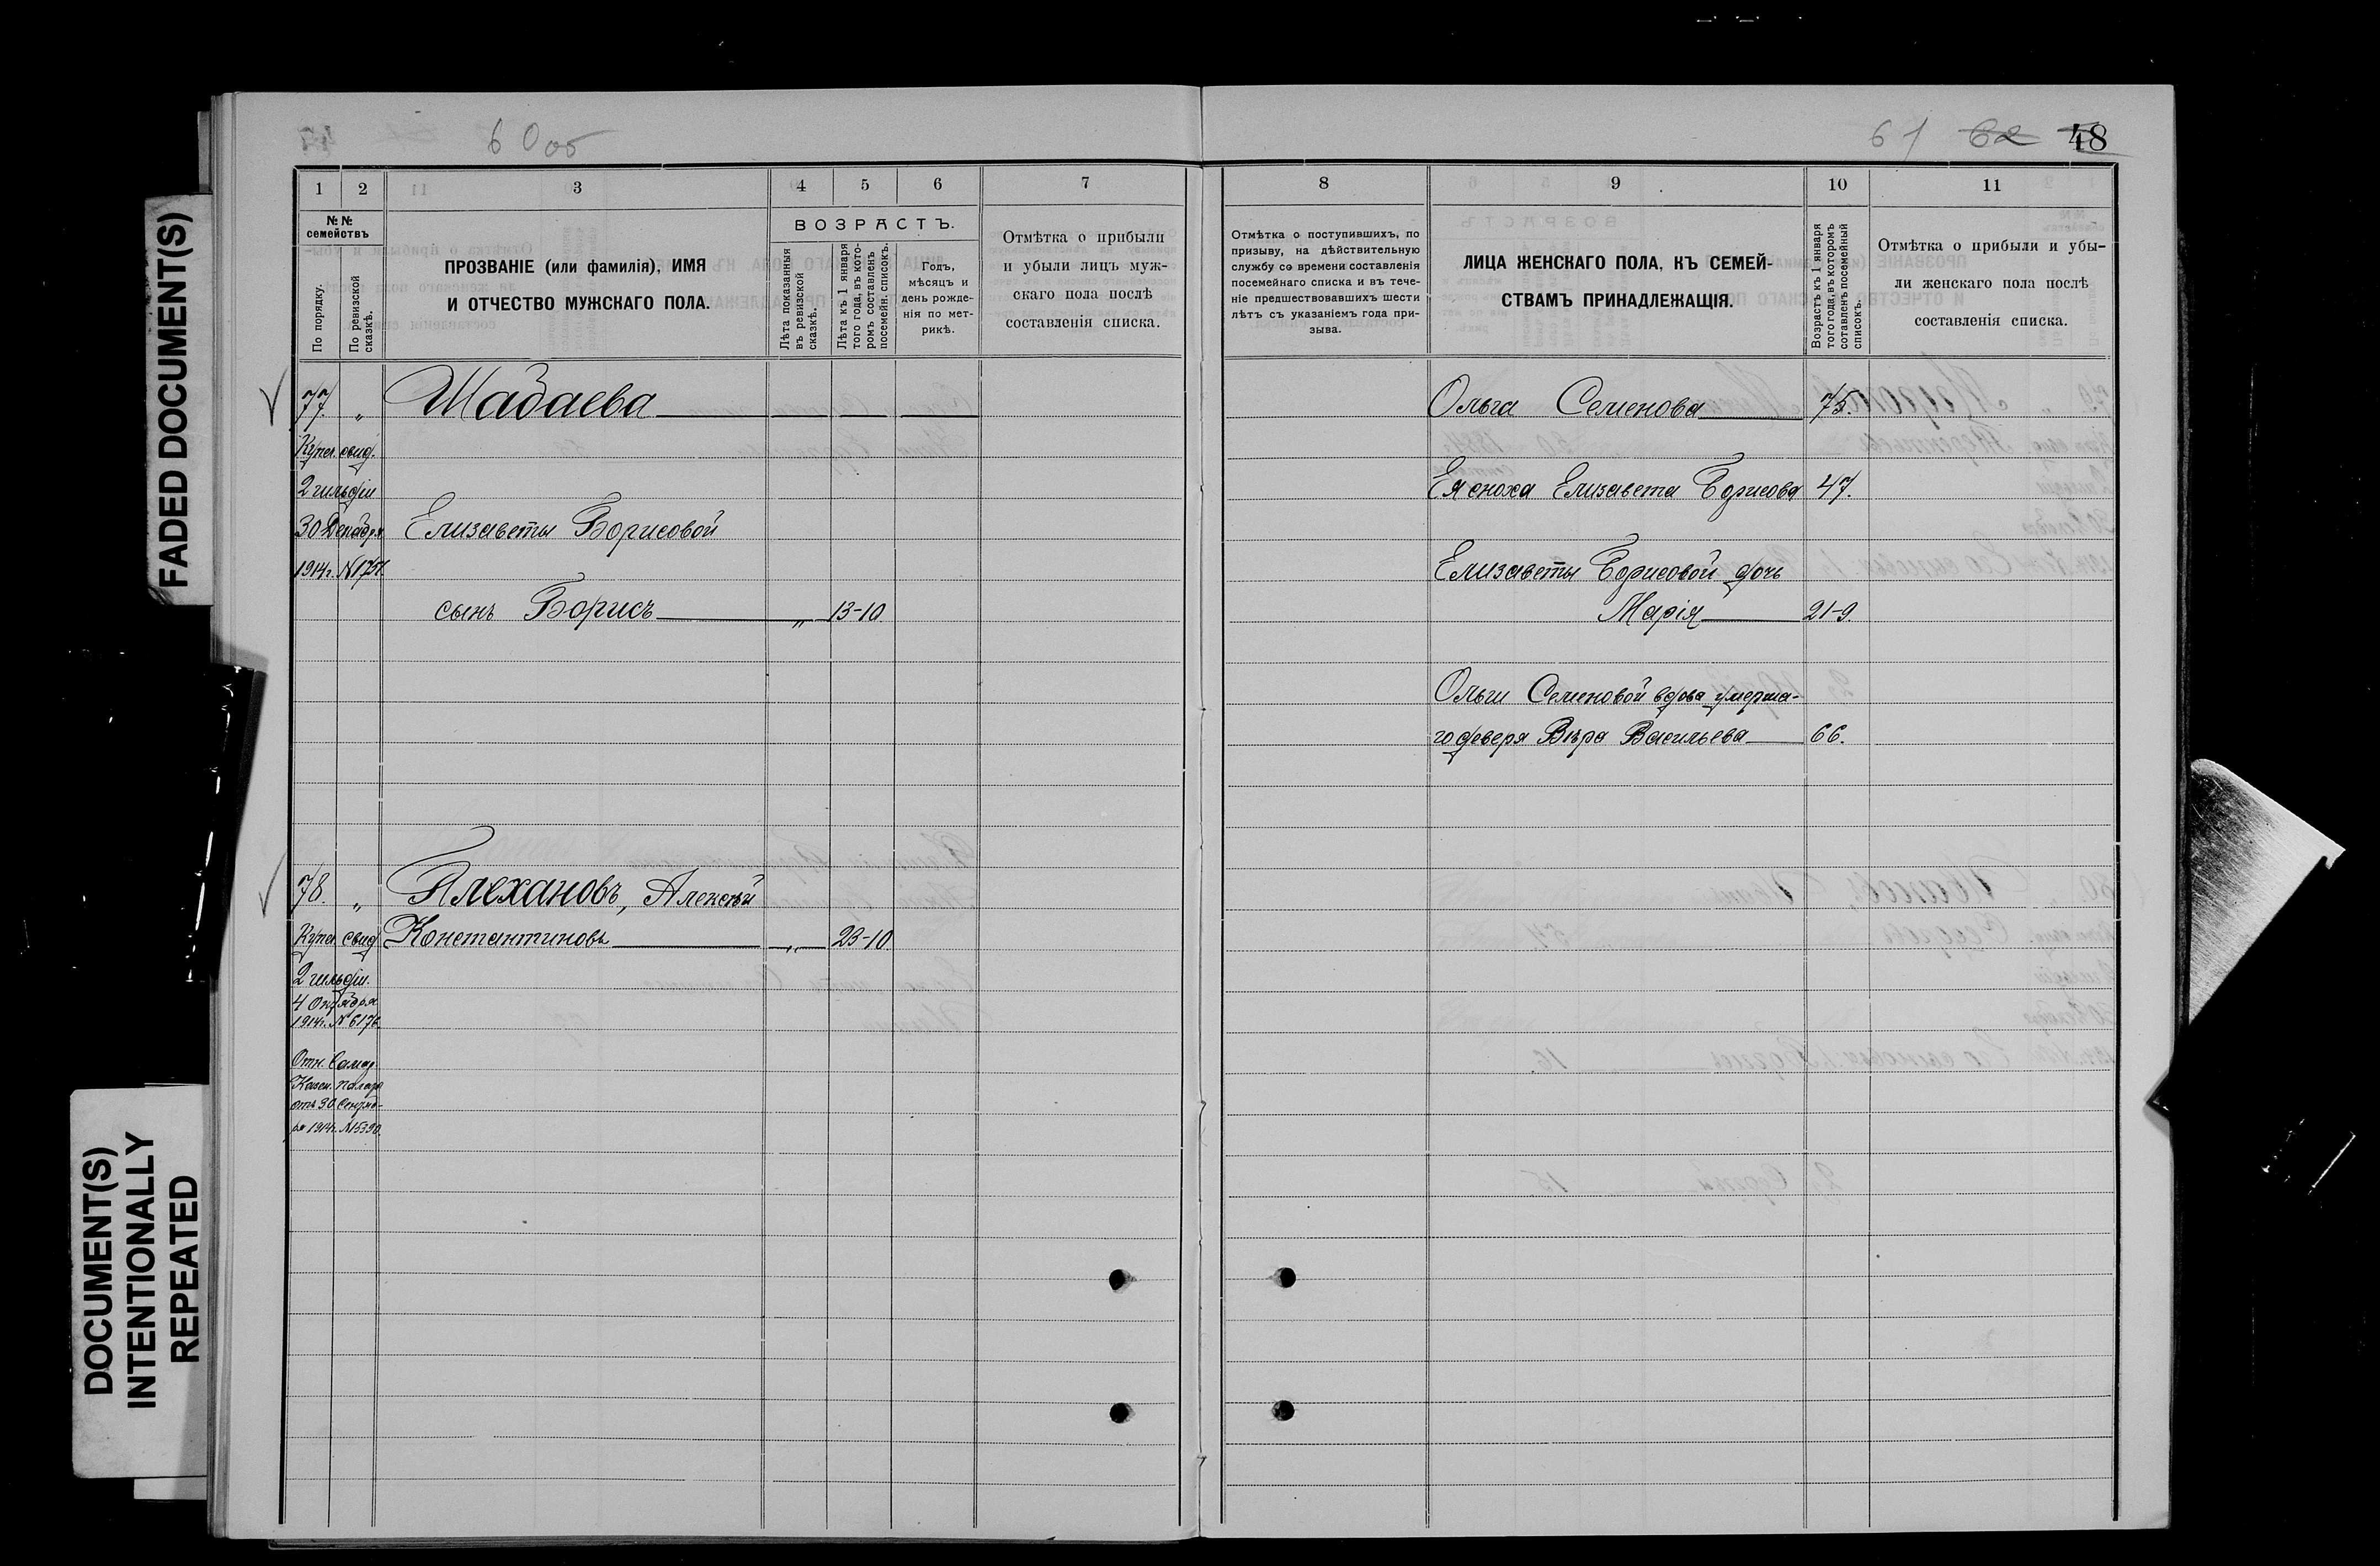 FADED DOCUMENT(S)
DOCUMENT(S)
INTENTIONALLY
REPEATED
60 об
1 2 3 4 5 6 7
№№
семействъ
По порядку.
По ревизской
сказкѣ.
ПРОЗВАНІЕ (или фамилія), ИМЯ
И ОТЧЕСТВО МУЖСКАГО ПОЛА.
ВОЗРАСТЪ.
Лѣта показанныя
въ ревизской
сказкѣ.
Лѣта къ 1 января
того года, въ кото-
ромъ составленъ
посемейн. списокъ.
Годъ,
мѣсяцъ и
день рожде-
нія по мет-
рикѣ.
Отмѣтка о прибыли
и убыли лицъ муж-
скаго пола послѣ
составленія списка.
77. „ Шабаева
Купеч. свид.
2 гильдіи
30 Декабря Елизаветы Борисовой
1914 г. №
сынъ Борисъ „ 13-10
78. „ Плехановъ, Алексѣй
Купеч. свид. Константиновъ „ 23-10
2 гильдіи.
4 Октября
1914 г. № 6176
Отн. Самар.
Казен. Палаты
отъ 30 Сентяб-
ря 1914 г. №15390.
61 62 48
8 9 10 11
Отмѣтка о поступившихъ, по
призыву, на дѣйствительную
службу со времени составленія
посемейнаго списка и въ тече-
ніе предшествовавшихъ шести
лѣтъ съ указаніемъ года при-
зыва.
ЛИЦА ЖЕНСКАГО ПОЛА, КЪ СЕМЕЙ-
СТВАМЪ ПРИНАДЛЕЖАЩІЯ.
Возрастъ къ 1 января
того года, въ которомъ
составленъ посемейный
списокъ.
Отмѣтка о прибыли и убы-
ли женскаго пола послѣ
составленія списка.
Ольга Семенова 75.
Ея сноха Елизавета Борисова 47.
Елизаветы Борисовой дочь
Марія 21-9.
Ольги Семеновой вдова умерша-
го деверя Вѣра Васильева 66.